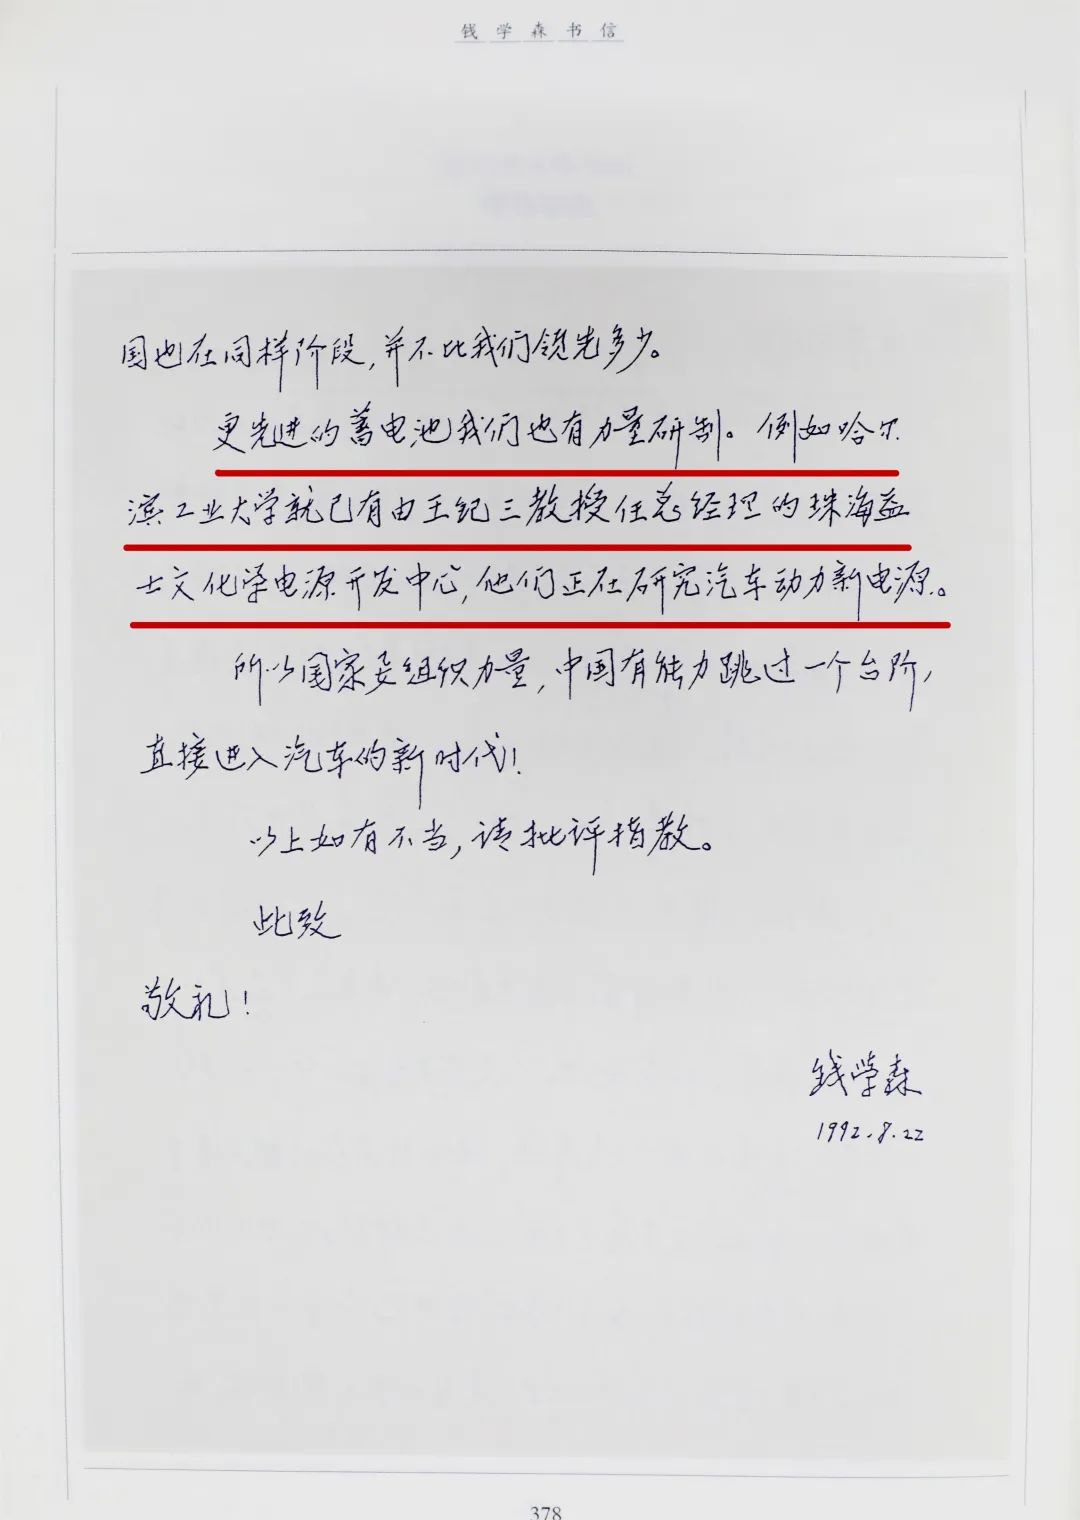 钱学森书信
国也在同样阶段,并不比我们领先多少。
更先进的蓄电池我们也有力量研制。例如哈尔
滨工业大学就已有由王纪三教授任总经理的珠海益
士文化学电源开发中心,他们正在研究汽车动力新电源。
所以国家要组织力量,中国有能力跳过一个台阶,
直接进入汽车的新时代!
以上如有不当,请批评指教。
此致
敬礼!
钱学森
1992.8.22
378